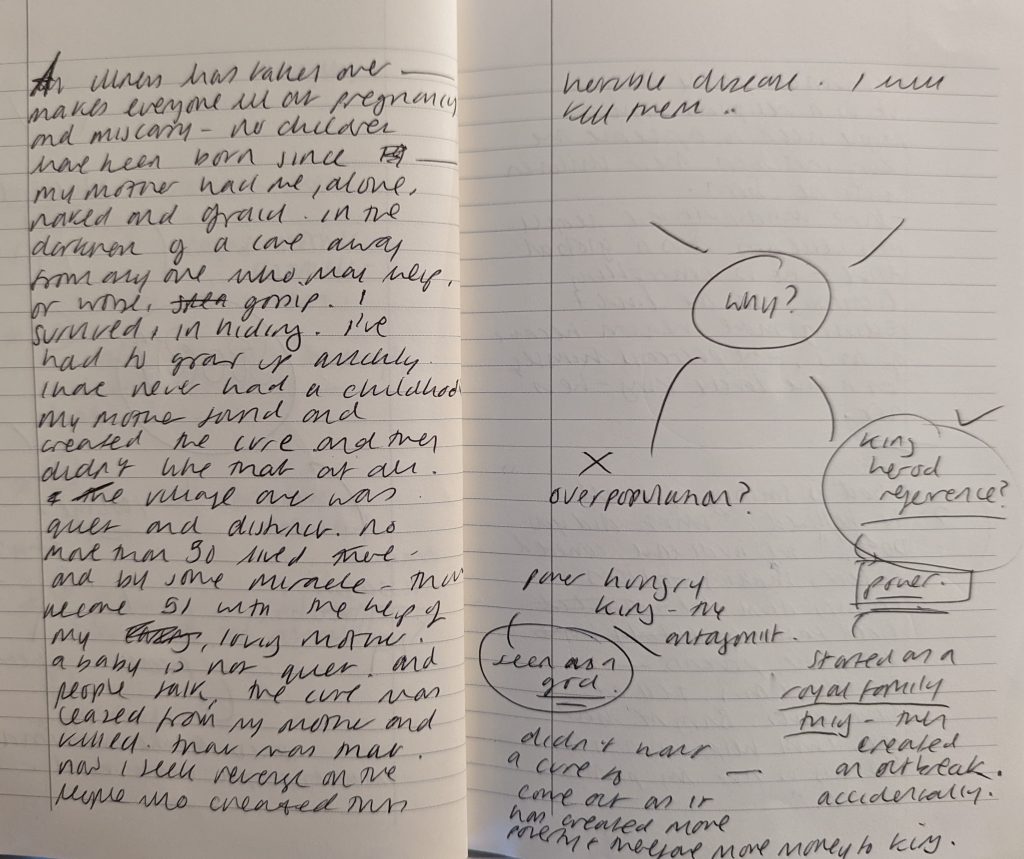 An illness has taken over ——
makes everyone ill at pregnancy
and miscarry - no children
have been born since ——
my mother had me, alone,
naked and afraid. in the
darkness of a cave away
from any one who may help,
or worse, gossip. I
survived, in hiding. I've
had to grow up quickly.
I have never had a childhood
my mother found and
created the cure and they
didn't like that at all.
the village over was
quiet and distinct. no
more than 50 lived there -
and by some miracle - that
became 51 with the help of
my loving mother.
a baby is not quiet. and
people talk, the cure was
ceazed from my mother and
killed. that was that.
now I seek revenge on the
people who created this
horrible disease. I will
kill them ..
why?
overpopulation?
king
herod
reference?
power.
power hungry
king - the
antagonist.
seen as a
god.
started as a
royal family
thing - then
created
an outbreak.
accidentally.
didn't want
a cure to
come out as it
has created more
poverty + therefore more money to king.